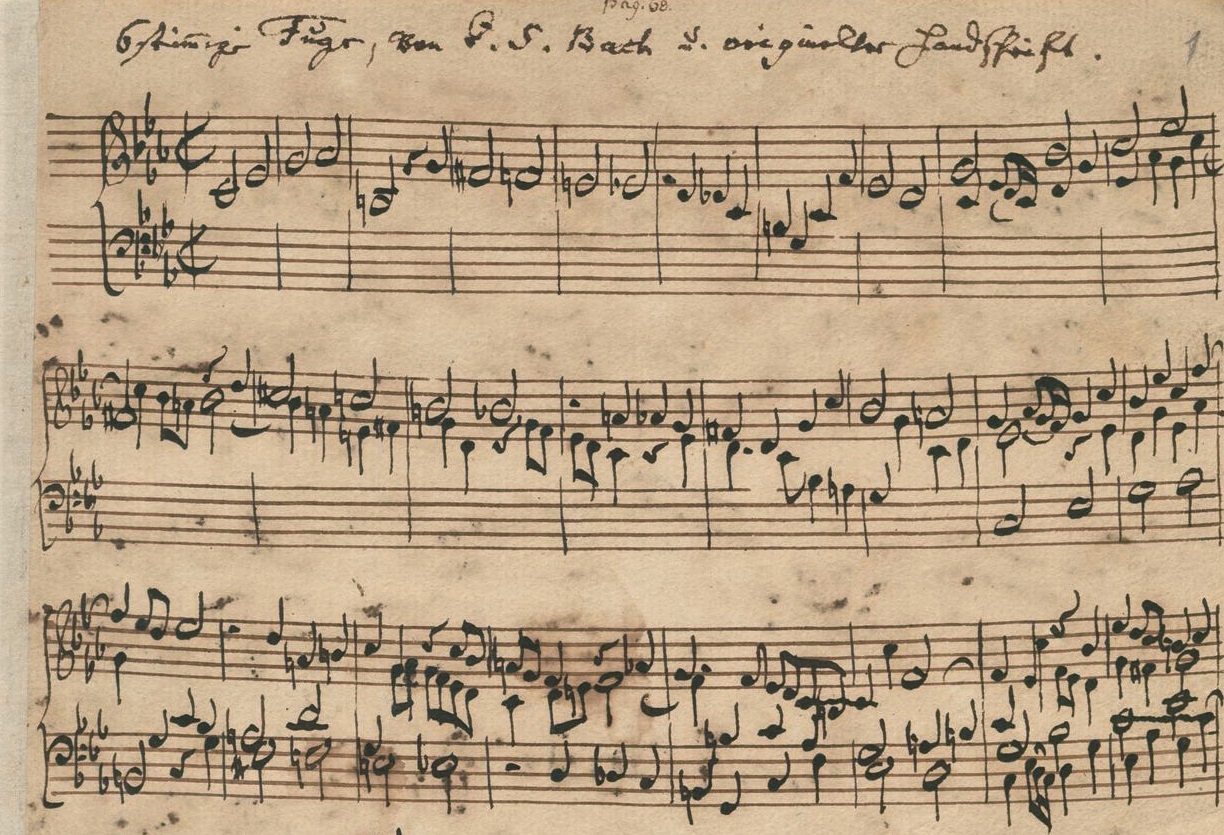 pag. 68.
6stimmige Fuge, von J. S. Bach u. origineller Handschrift.
1